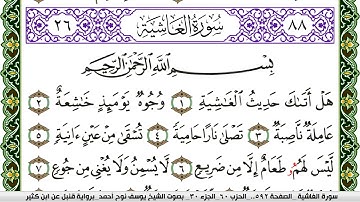 ٢٦ سُورَةُ الْغَاشِيَةِ ٨٨
بِسْمِ اللَّهِ الرَّحْمَٰنِ الرَّحِيمِ
هَلْ أَتَىٰكَ حَدِيثُ الْغَٰشِيَةِ ١ وُجُوهٌ يَوْمَئِذٍ خَٰشِعَةٌ ٢
عَامِلَةٌ نَّاصِبَةٌ ٣ تَصْلَىٰ نَارًا حَامِيَةً ٤ تُسْقَىٰ مِنْ عَيْنٍ ءَانِيَةٍ ٥
لَّيْسَ لَهُمُۥ طَعَامٌ إِلَّا مِن ضَرِيعٍ ٦ لَّا يُسْمِنُ وَلَا يُغْنِي مِن جُوعٍ ٧
سورة الغاشية _ الصفحة ٥٩٢ _ الحزب ٦٠ _ الجزء ٣٠ _ بصوت الشيخ يوسف نوح أحمد _ برواية قنبل عن ابن كثير